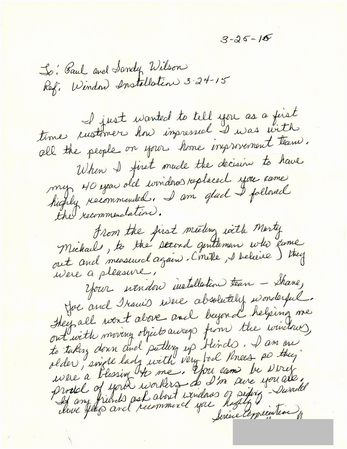 3-25-15
To: Paul and Sandy Wilson
Ref: Window Installation 3-24-15
I just wanted to tell you as a first
time customer how impressed I was with
all the people on your home improvement team.
When I first made the decision to have
my 40 year old windows replaced you came
highly recommended. I am glad I followed
the recommendation.
From the first meeting with Marty
Michaels, to the second gentleman who came
out and measured again (Mike, I believe) they
were a pleasure.
Your window installation team - Shane,
Joe and Travis were absolutely wonderful.
They all went above and beyond helping me
out with moving objects away from the windows,
to taking down and putting up blinds. I am an
older, single lady with very bad knees so they
were a blessing to me. You can be very
proud of your workers as I'm sure you are.
If any friends ask about windows or siding - I would
and recommend you highly
Sincere Appreciation